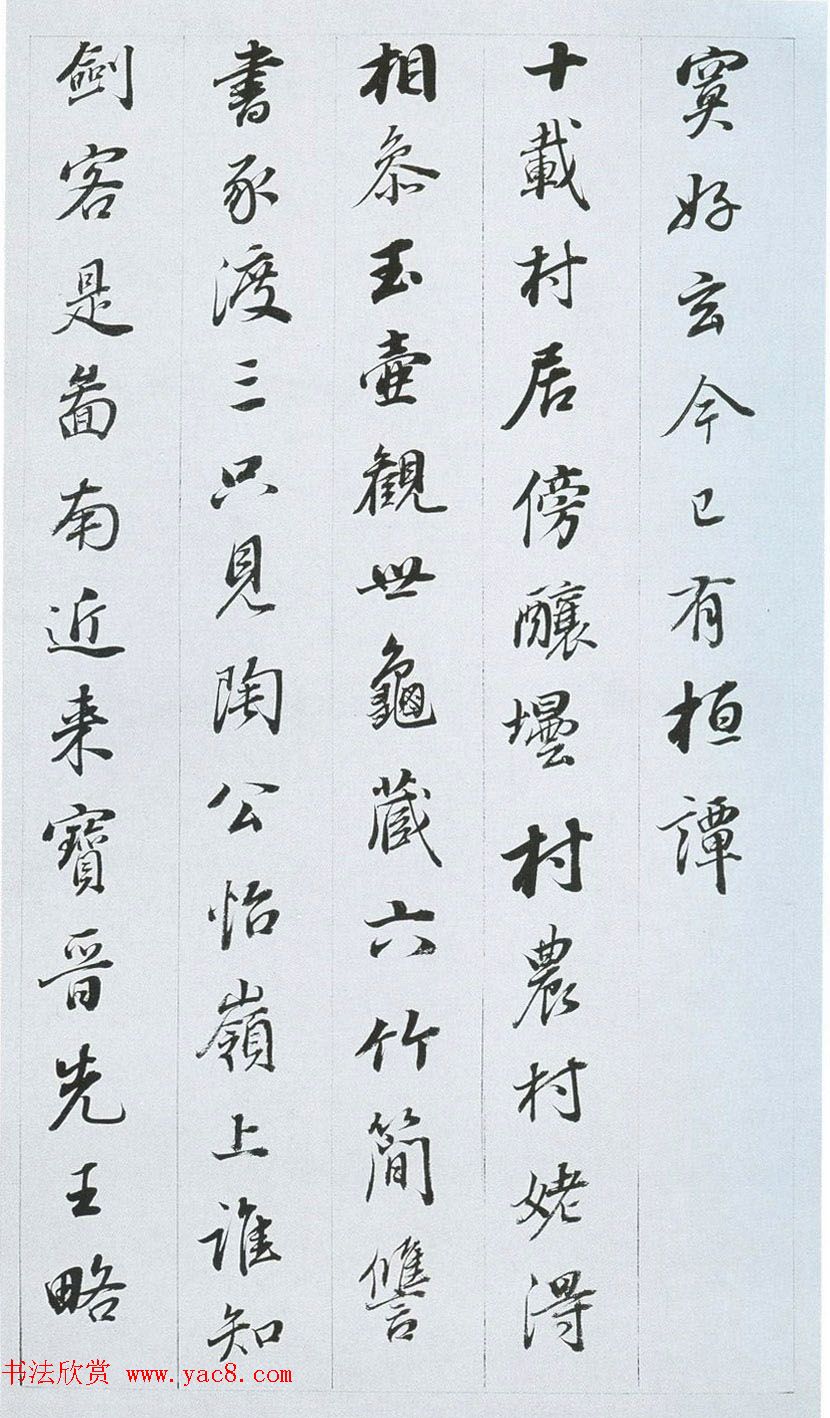 寞好玄今已有桓譚
十載村居傍釀壜村農村姥得
相叅玉壺觀世龜藏六竹簡讎
書豕渡三只見陶公怡嶺上誰知
劍客是啚南近来寶晉先王略
书法欣赏 www.yac8.com